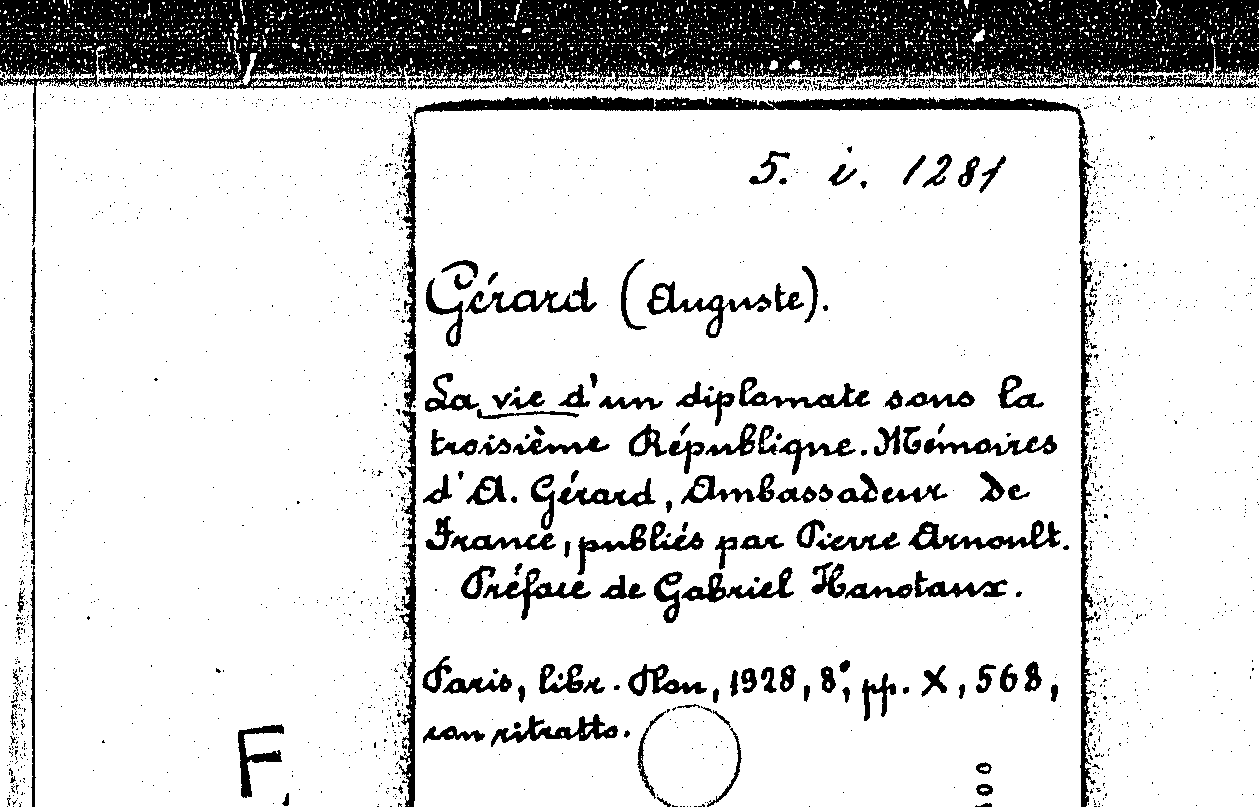 5. i. 1281
Gérard (Auguste).
La vie d'un diplomate sous la
troisième République. Mémoires
d'A. Gérard, Ambassadeur de
France, publiés par Pierre Arnoult.
Préface de Gabriel Hanotaux.
Paris, libr. Plon, 1928, 8°, pp. X, 568,
con ritratto.
F.